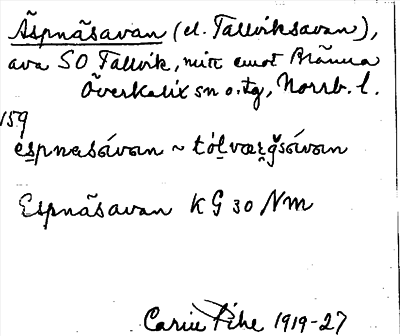 Äspnäsavan (el. Tallviksavan),
ava SO Tallvik, mitt emot Bränna
Överkalix sn o. tg, Norrb. l.
159
Espnäsavan KG 30 NM
Carin Pihl 1919-27